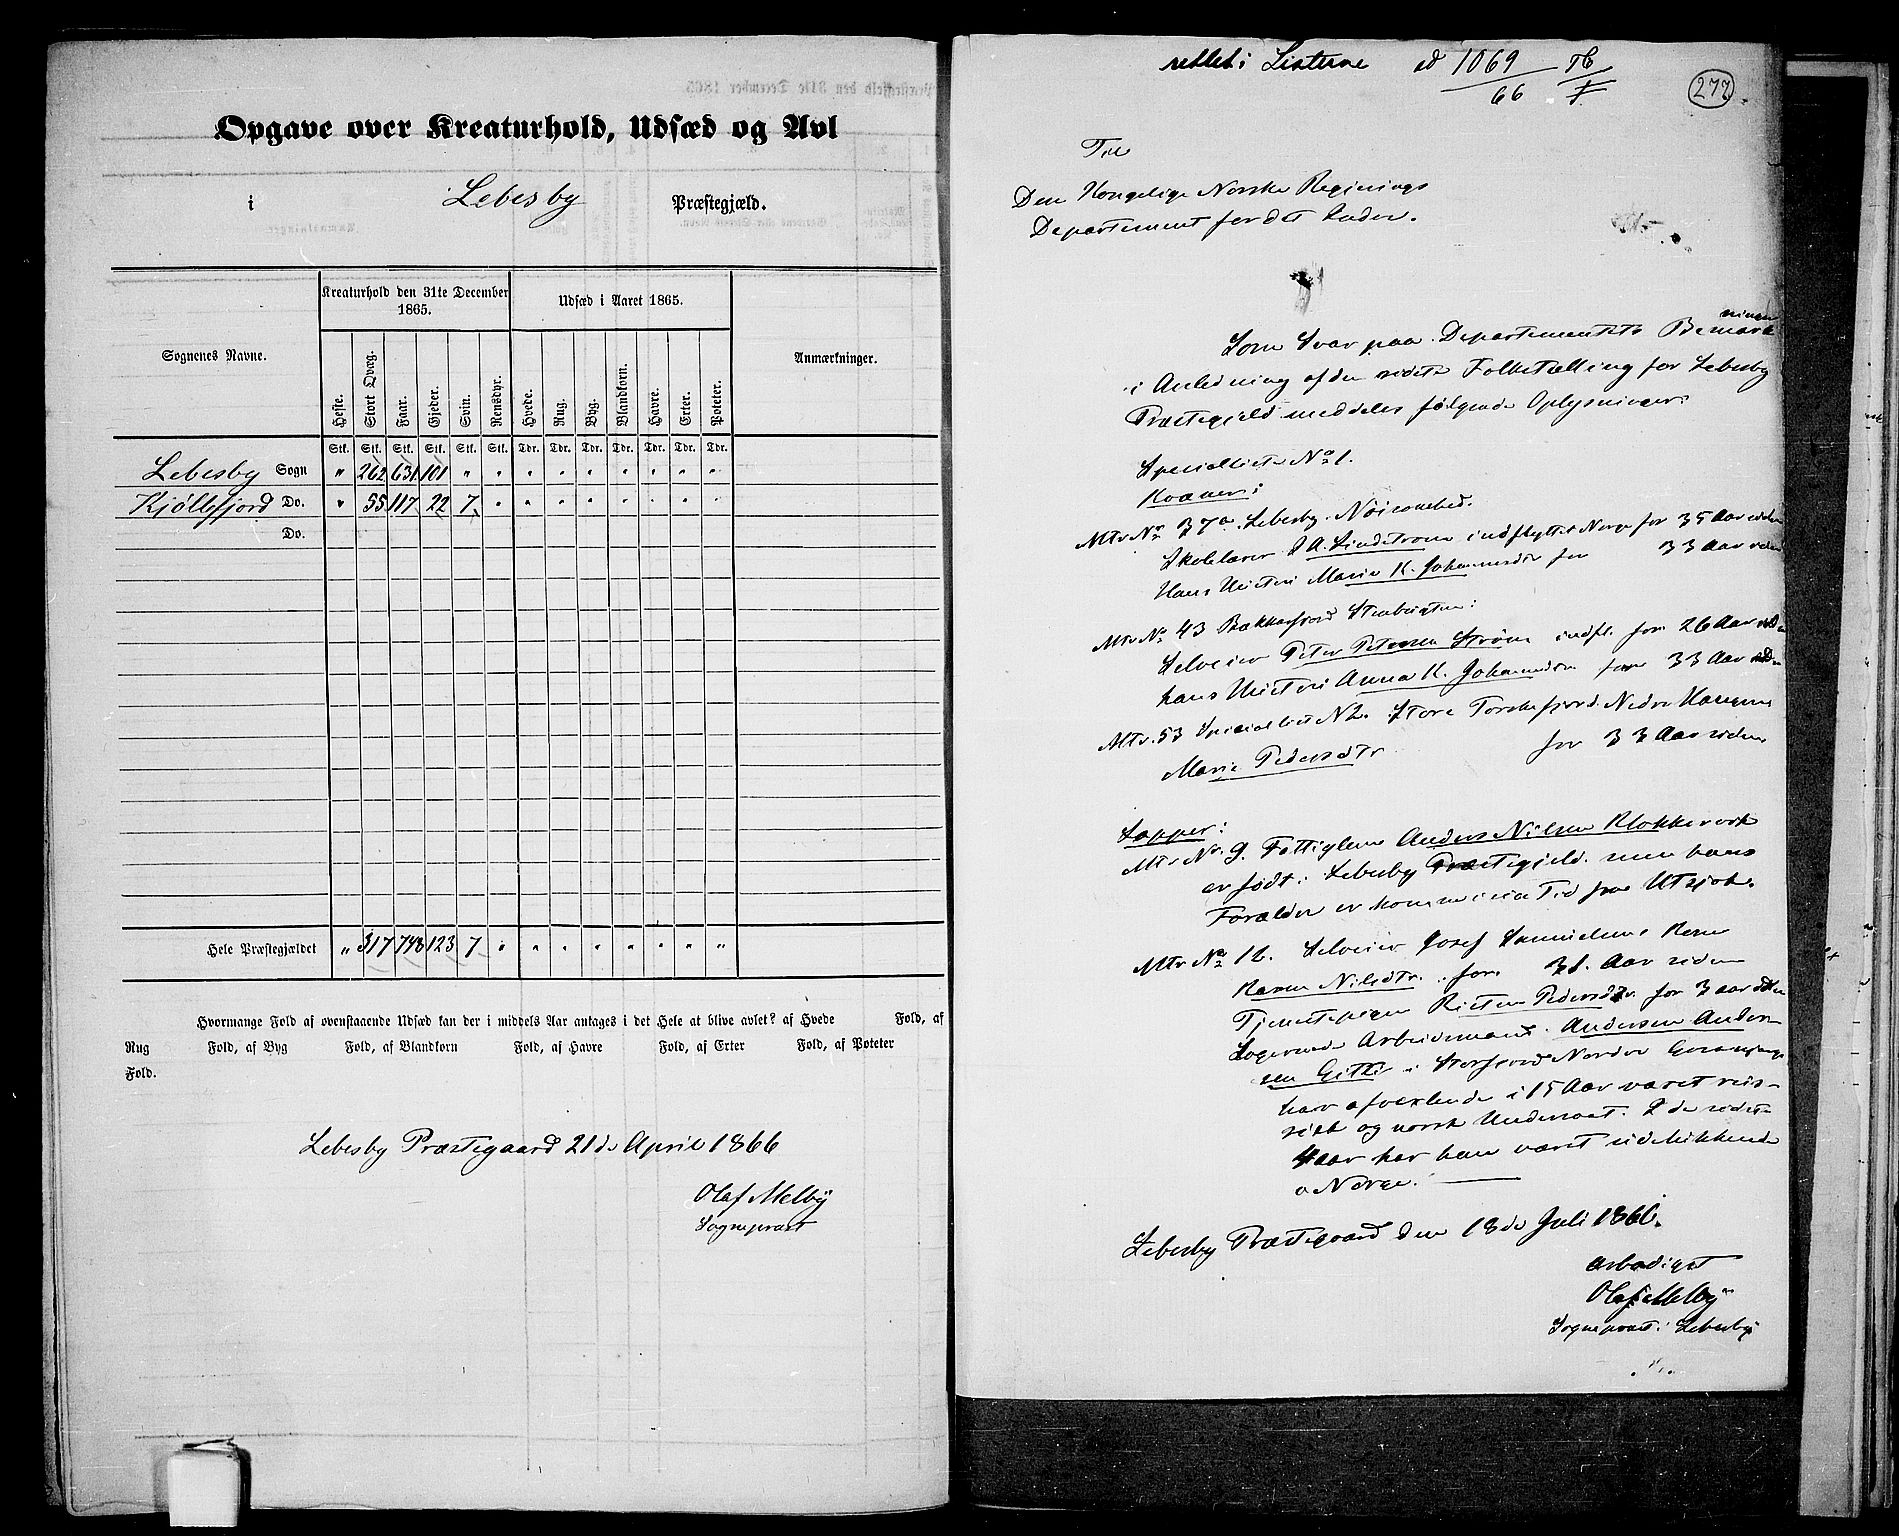 Opgave over Kreaturhold, Udsæd og Avl
i Lebesby Præstegjæld.
Sognenes Navne.
Kreaturhold den 31te December 1865.
Udsæd i Aaret 1865.
Anmærkninger.
Heste. Stort Qvæg. Faar. Gjeder. Svin. Rensdyr. Hvede. Rug. Byg. Blandkorn. Havre. Erter. Poteter.
Stk. Stk. Stk. Stk. Stk. Stk. Tdr. Tdr. Tdr. Tdr. Tdr. Tdr. Tdr.
Lebesby Sogn " 262 631 101 " " " " " " " " "
Kjøllefjord Do. " 55 117 22 7 " " " " " " " "
Do.
Hele Præstegjældet " 317 748 123 7 " " " " " " " "
Hvormange Fold af ovenstaaende Udsæd kan der i middels Aar antages i det Hele at blive avlet? af Hvede Fold, af
Rug Fold, af Byg Fold, af Blandkorn Fold, af Havre Fold, af Erter Fold, af Poteter
Fold.
Lebesby Præstegaard 21de April 1866
Olaf Melby
Sognepræst
rettet i Listerne 1069
66
277
Til
Den Kongelige Norske Regjerings
Departement for det Indre.
Som Svar paa Departementets Bemærkninger
i Anledning af den sidste Folketælling for Lebesby
Præstegjeld meddeles følgende Oplysninger:
Specialliste No 1.
Kvæner:
Mtr No 37a Lebesby
Skolelærer J A. Lindstrøm indflyttet Norge for 35 Aar siden
Hans Hustru Maria K. Johannesdtr for 33 Aar siden
Mtr No 43 Bekkarfjord
Selveier Peter Petersen Strøm indfl. for 26 Aar siden
hans Hustru Anna K. Johannsdtr for 33 Aar siden
Mtr. 53 Specialliste N 2. Store Torskefjord. Nedre
Maria Pedersdtr for 33 Aar siden
Lapper:
Mtr No. 9. Fattiglem Anders Nilsen Klokkervok
er født i Lebesby Præstegjeld. men hans
Forældre er komne i sin Tid fra Utsjok.
Mtr No 12. Selveier Josef Samuelsens Kone
Karen Nilsdtr. for 31. Aar siden
Tjenestepigen Kirsten Pedersdtr. for 3 aar siden
Logerende Arbeidsmand. Andersen Ander-
sen Gitti i Storfjord Nordre
har afvexlende i 15 Aar været rus-
sisk og norsk Undersaat. I de sidste
4 aar har han været udelukkende
i Norge.
Lebesby Præstegaard den 18de Juli 1866.
ærbødigst
Olaf Melby
Sognepræst i Lebesby